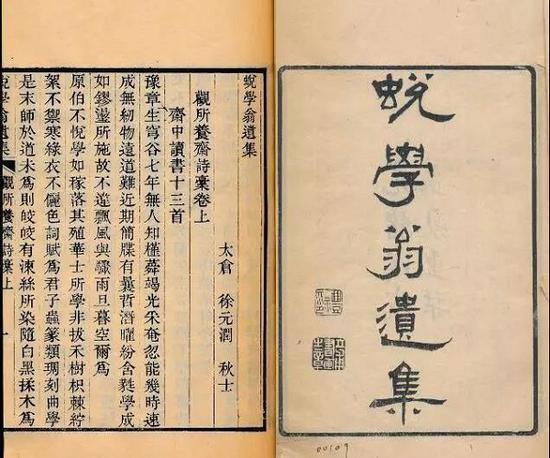 蛻學翁遺集
00109
蛻學翁遺集
太倉 徐元潤 秋士
觀所養齋詩稾卷上
齋中讀書十三首
豫章生穹谷七年無人知槿蕣竭光采奄忽能幾時速
成無紉物遠道難近期簡牒有曩哲潛曜紛舍學成
如鏐鋈所施故不飄風與驟雨旦暮空爾為
原伯不悅學如稼落其殖華士所學非拔禾樹枳棘紵
絮不禦寒綠衣不儷色詞賦為君子蟲篆類琱刻曲學
是末師於道未為則皎皎有湅絲所染隨白黑揉木為
蛻學翁遺集 觀所養齋詩稾上 一